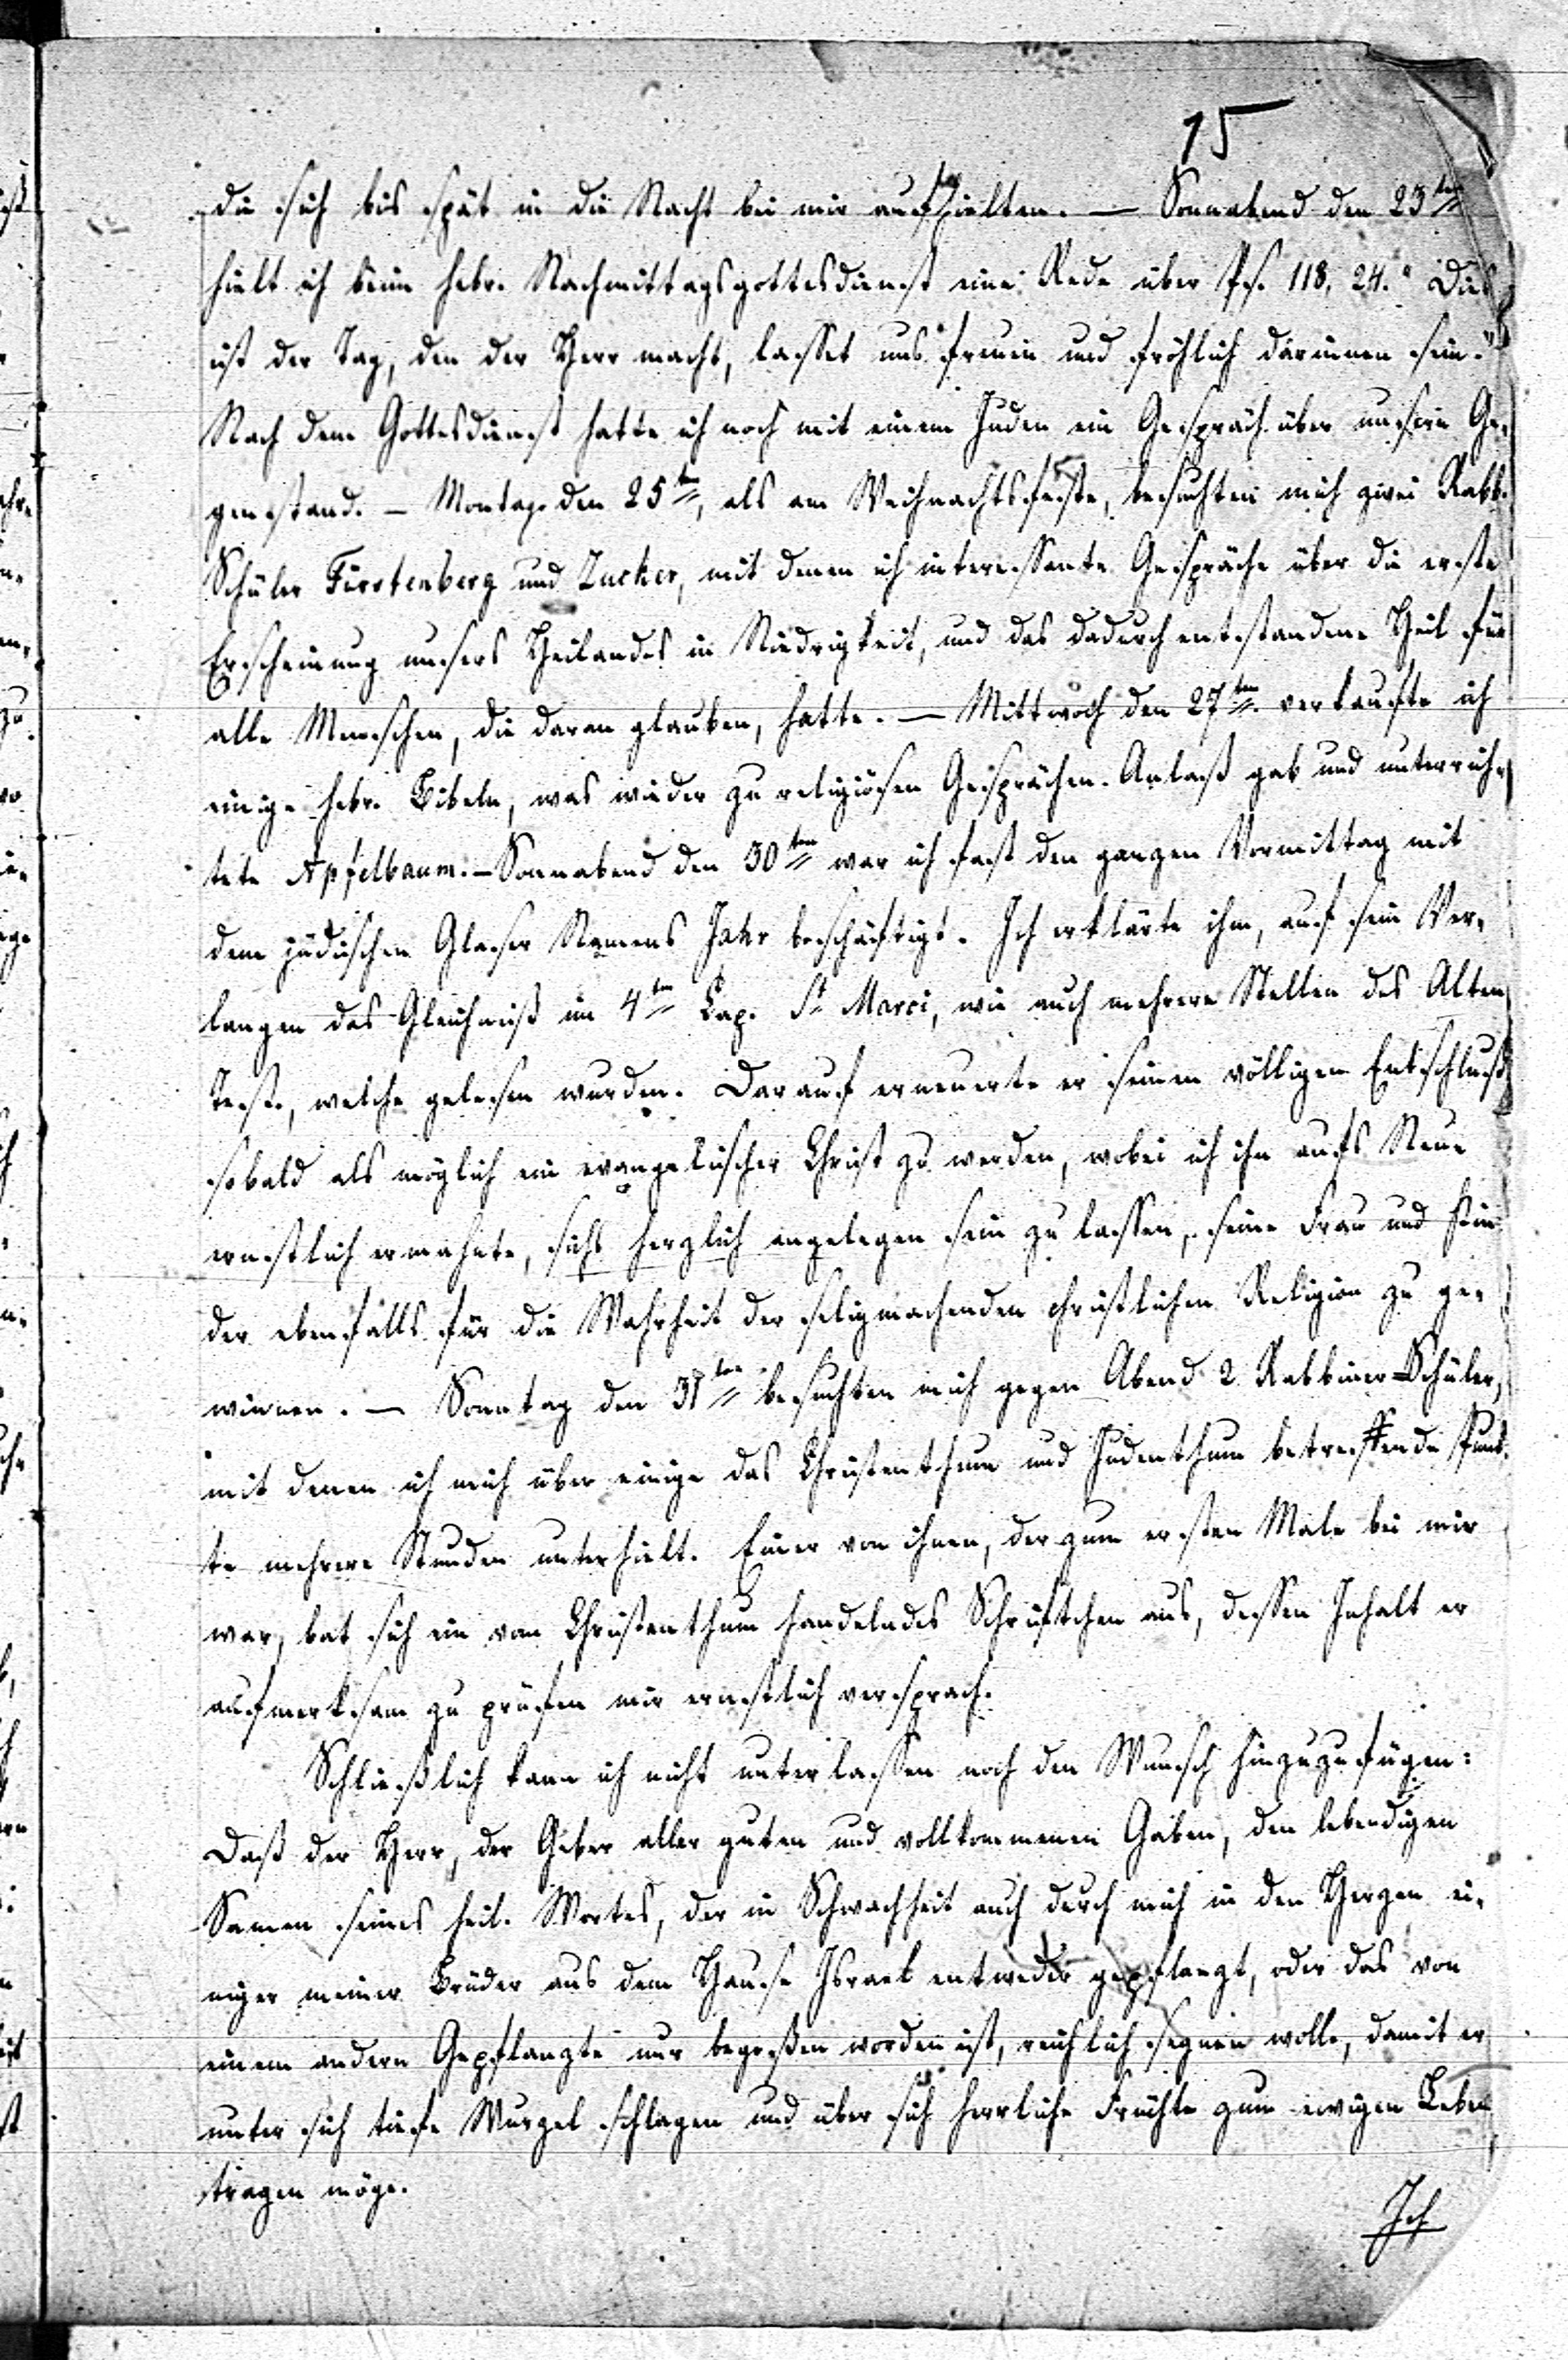 15
die sich bis spät in die Nacht bei mir aufhielten. — Sonnabend den 23ten
hielt ich beim hebr. Nachmittagsgottesdienst eine Rede über Ps. 118, 24. „Dies
ist der Tag, den der Herr macht, lasset uns freuen und fröhlich darinnen sein."
Nach dem Gottesdienst hatte ich noch mit einem Juden ein Gespräch über unsern Ge-
genstand. — Montag den 25ten, als am Weihnachtsfeste, besuchten mich zwei Rabb.
Schüler Fürstenberg und Zucker, mit denen ich interessante Gespräche über die erste
Erscheinung unsers Heilandes in Niedrigkeit, und das dadurch entstandene Heil für
alle Menschen, die daran glauben, hatte. — Mittwoch den 27ten verkaufte ich
einige hebr. Bibeln, was wieder zu religiösen Gesprächen Anlaß gab und unterrich-
tete Apfelbaum. — Sonnabend den 30ten war ich fast den ganzen Vormittag mit
dem jüdischen Glaser Namens Jahr beschäftigt. Ich erklärte ihm, auf sein Ver-
langen das Gleichniß im 4ten Cap. St Marci, wie auch mehrere Stellen des Alten
Test., welche gelesen wurden. Darauf erneuerte er seinen völligen Entschluß
sobald als möglich ein evangelischer Christ zu werden, wobei ich ihn aufs Neue
ernstlich ermahnte, sichs herzlich angelegen sein zu lassen, seine Frau und Kin-
der ebenfalls für die Wahrheit der seligmachenden christlichen Religion zu ge-
winnen. — Sonntag den 31ten besuchten mich gegen Abend 2 Rabbiner-Schüler,
mit denen ich mich über einige das Christenthum und Judenthum betreffende Punk-
te mehrere Stunden unterhielt. Einer von ihnen, der zum ersten Male bei mir
war, bat sich ein vom Christenthum handelndes Schriftchen aus, dessen Inhalt er
aufmerksam zu prüfen mir ernstlich versprach.
Schließlich kann ich nicht unterlassen noch den Wunsch hinzuzufügen:
Daß der Herr, der Geber aller guten und vollkommenen Gaben, den lebendigen
Samen seines heil. Wortes, der in Schwachheit auch durch mich in den Herzen ei-
niger meiner Brüder aus dem Hause Israel entweder gepflanzt, oder das von
einem andern Gepflanzte nur begossen worden ist, reichlich segnen wolle, damit er
unter sich tiefe Wurzel schlagen und über sich herrliche Früchte zum ewigen Leben
tragen möge.
Ich